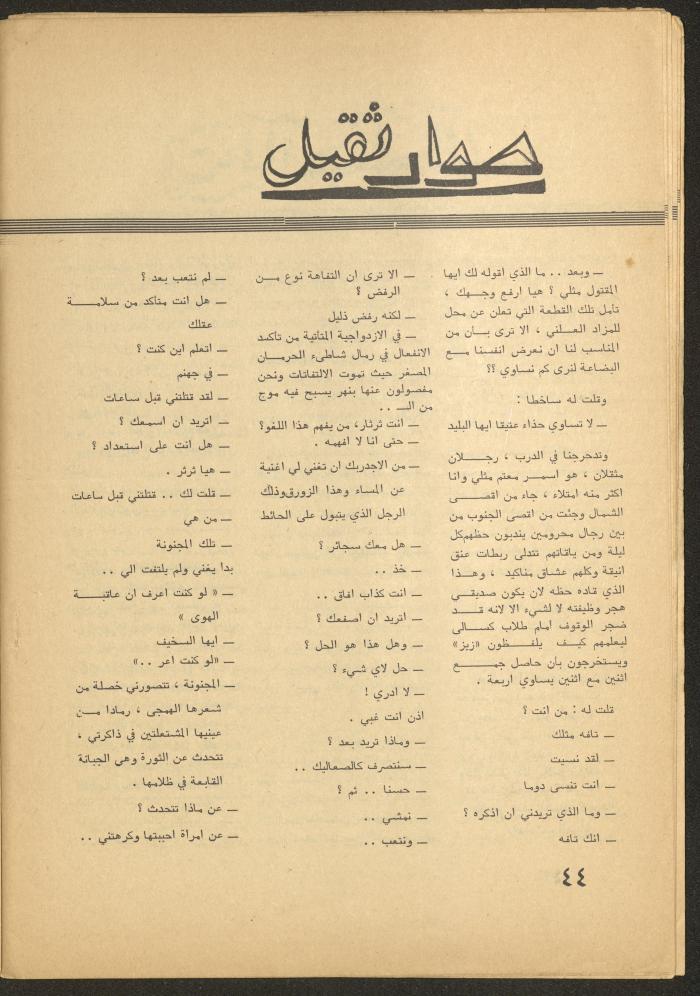 حوار ثقيل
ــ وبعد .. ما الذي اقوله لك ايها
المقتول مثلي ؟ هيا ارفع وجهك ،
تأمل تلك القطعة التي تعلن عن محل
للمزاد العلني ، الا ترى بان من
المناسب لنا ان نعرض انفسنا مع
البضاعة لنرى كم نساوي ؟؟
وقلت له ساخطا :
ــ لا تساوي حذاء عتيقا ايها البليد
وتدحرجنا في الدرب ، رجلان
مثقلان ، هو اسمر معتم مثلي وانا
اكثر منه امتلاء ، جاء من اقصى
الشمال وجئت من اقصى الجنوب من
بين رجال محرومين يندبون حظهم كل
ليلة ومن ياقاتهم تتدلى ربطات عنق
انيقة وكلهم عشاق مناكيد ، وهذا
الذي قاده حظه لان يكون صديقي
هجر وظيفته لا لشيء الا لانه قد
ضجر الوقوف امام طلاب كسالى
ليعلمهم كيف يلفظون «زيز»
ويستخرجون بأن حاصل جمع
اثنين مع اثنين يساوي اربعة .
قلت له : من انت ؟
ــ تافه مثلك
ــ لقد نسيت
ــ انت تنسى دوما
ــ وما الذي تريدني ان اذكره ؟
ــ انك تافه
ــ الا ترى ان التفاهة نوع من
الرفض ؟
ــ لكنه رفض ذليل
ــ في الازدواجية المتأتية من تأكسد
الانفعال في رمال شاطىء الحرمان
المصغر حيث تموت الالتفاتات ونحن
مفصولون عنها بنهر يسبح فيه موج
من الــ ..
ــ انت ثرثار، من يفهم هذا اللغو؟
ــ حتى انا لا افهمه .
ــ من الاجدر بك ان تغني لي اغنية
عن المساء وهذا الزورق وذلك
الرجل الذي يتبول على الحائط
ــ هل معك سجائر ؟
ــ خذ ..
ــ انت كذاب افاق ..
ــ اتريد ان اصفعك ؟
ــ وهل هذا هو الحل ؟
ــ حل لاي شيء ؟
ــ لا ادري !
اذن انت غبي .
ــ وماذا تريد بعد ؟
ــ سنتصرف كالصعاليك ..
ــ حسنا .. ثم ؟
ــ نمشي ..
ــ ونتعب ..
ــ لم نتعب بعد ؟
ــ هل انت متأكد من سلامة
عقلك
ــ اتعلم اين كنت ؟
ــ في جهنم
ــ لقد قتلتني قبل ساعات
ــ اتريد ان اسمعك ؟
ــ هل انت على استعداد ؟
ــ هيا ثرثر .
ــ قلت لك .. قتلتني قبل ساعات
ــ من هي
ــ تلك المجنونة
بدا يغني ولم يلتفت الي ..
ــ « لو كنت اعرف ان عاقبة
الهوى »
ــ ايها السخيف
ــ «لو كنت اعر ..»
ــ المجنونة ، تتصورني خصلة من
شعرها الهمجي ، رمادا من
عينيها المشتعلتين في ذاكرتي ،
تتحدث عن الثورة وهي الجبانة
القابعة في ظلامها .
ــ عن ماذا تتحدث ؟
ــ عن امراة احببتها وكرهتني ..
٤٤